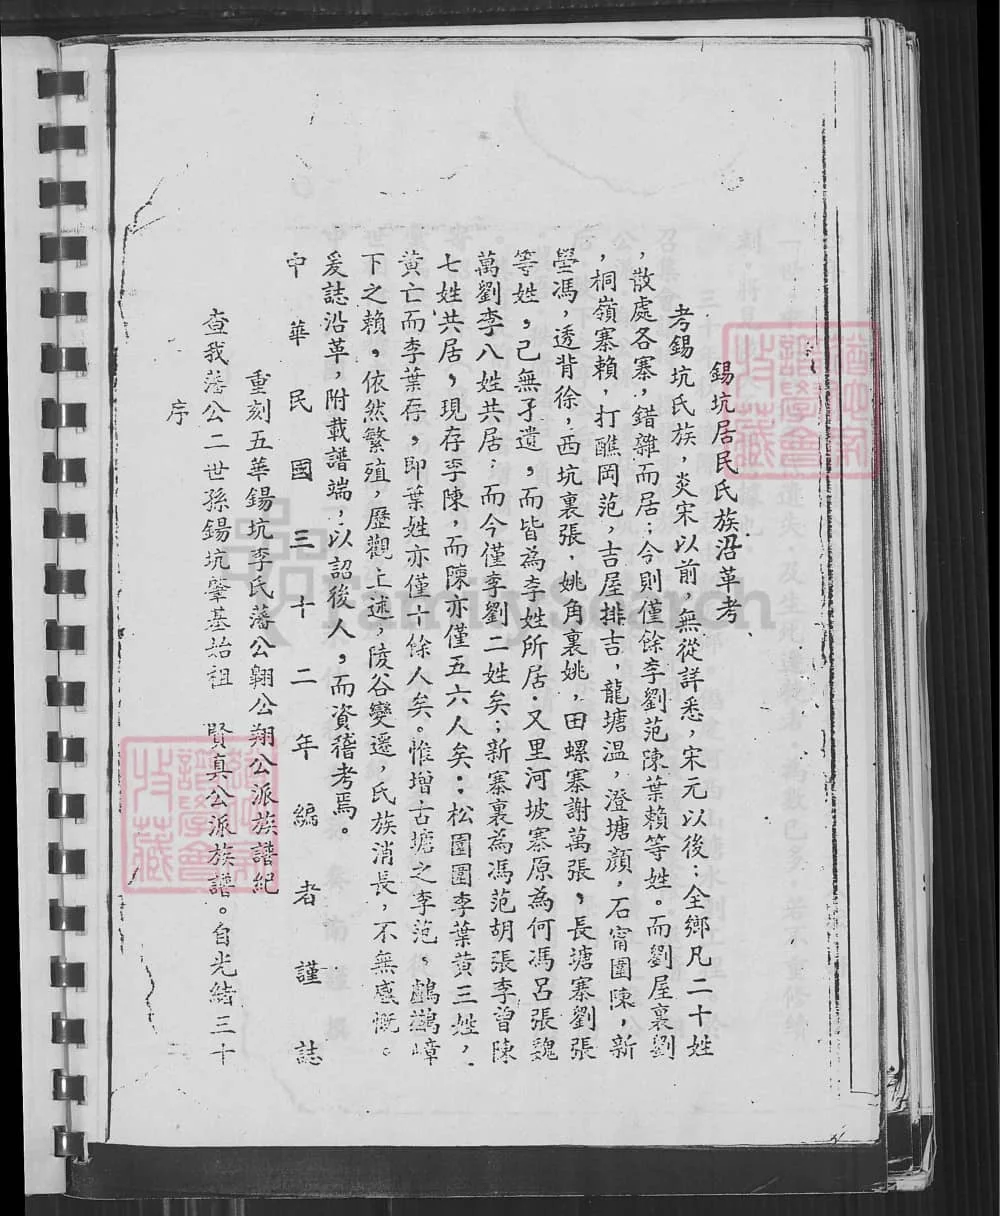 錫坑居民氏族沿革考
考錫坑氏族，炎宋以前，無從詳悉，宋元以後：全鄉凡二十姓
，散處各寨，錯雜而居；今則僅餘李劉范陳葉賴等姓。而劉屋裏劉
，桐嶺寨賴，打醮岡范，吉屋排吉，龍塘溫，澄塘顏，石甯圍陳，新
壆馮，透背徐，西坑裏張，姚角裏姚，田螺寨謝萬張，長塘寨劉張
等姓，已無孑遺，而皆為李姓所居．又里河坡寨原為何馮呂張魏
萬劉李八姓共居；而今僅李劉二姓矣；新寨裏為馮范胡張李曾陳
七姓共居，現存李陳，而陳亦僅五六人矣：松園圍李葉黃三姓，
黃亡而李葉存，即葉姓亦僅十餘人矣。惟增古塘之李范。鷓鴣嶂
下之賴，依然繁殖，歷觀上述，陵谷變遷，氏族消長，不無感慨。
爰誌沿革，附載譜端，以詔後人，而資稽考焉。
中華民國三十二年編者謹誌
重刻五華錫坑李氏藩公翱公翔公派族譜紀
序
查我藩公二世孫錫坑肇基始祖 賢真公派族譜。自光緒三十
譜學會
收藏
譜學會
收藏
FamilySearch